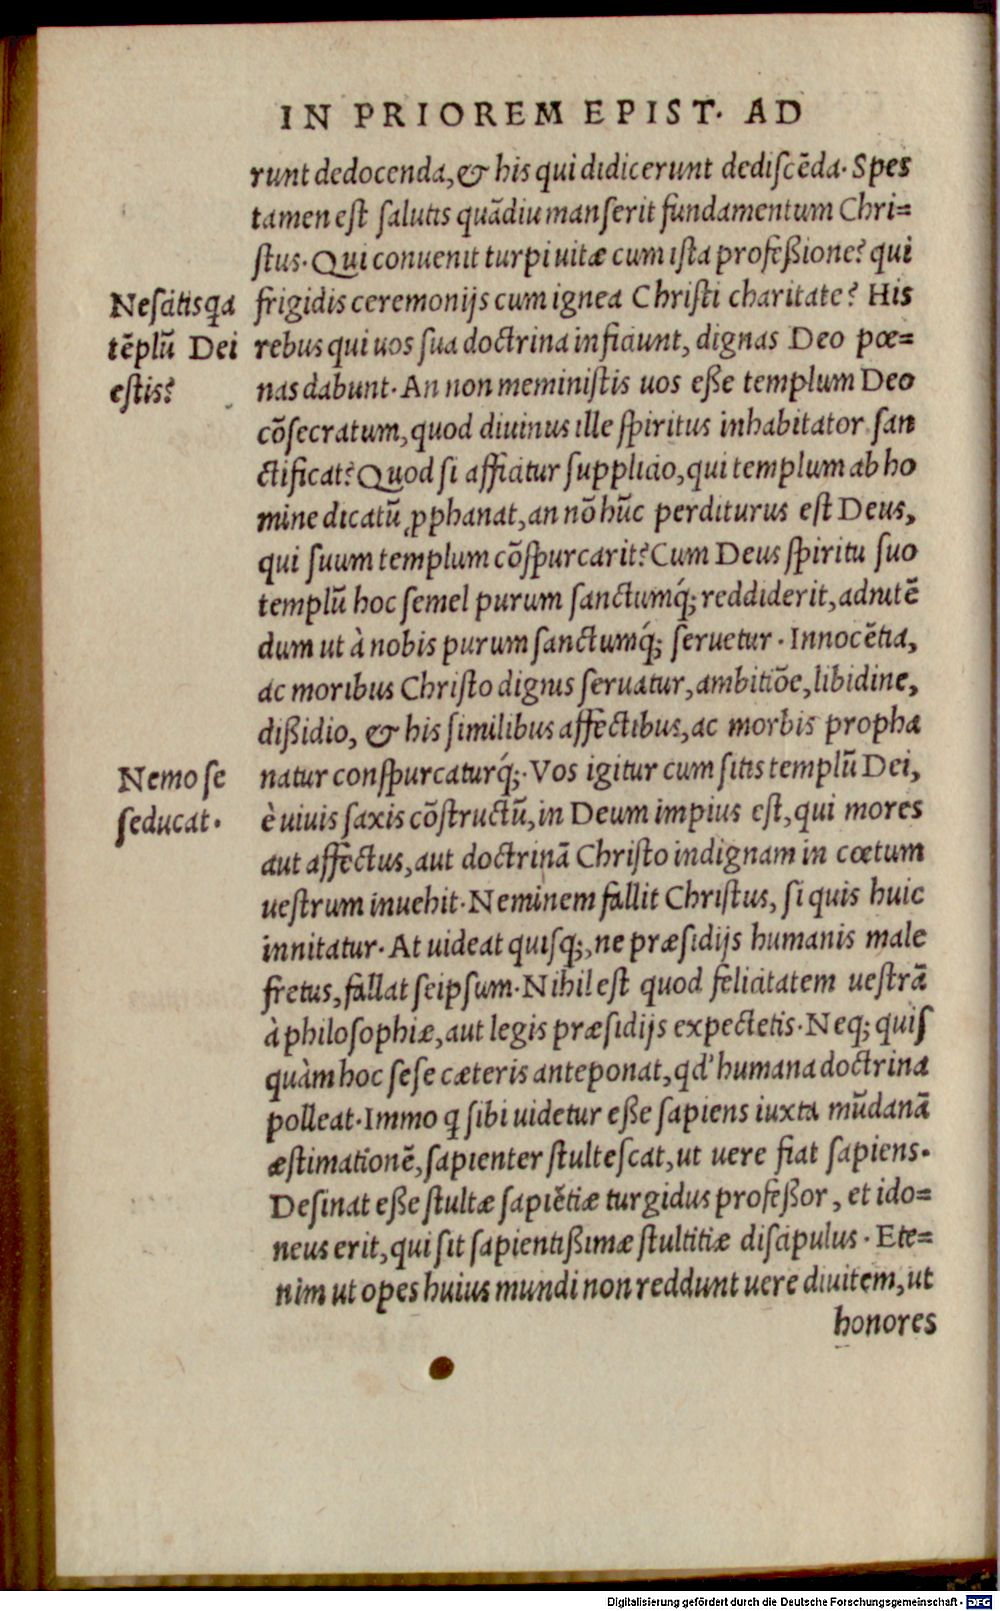 IN PRIOREM EPIST. AD
runt dedocenda, & his qui didicerunt dediscẽda. Spes
tamen est salutis quãdiu manserit fundamentum Chri=
stus. Qui conuenit turpi uitæ cum ista professione? qui
Nescitis qa
frigidis ceremonijs cum ignea Christi charitate? His
tẽplũ Dei
rebus qui uos sua doctrina inficiunt, dignas Deo pœ=
estis?
nas dabunt. An non meministis uos eße templum Deo
cõsecratum, quod diuinus ille spiritus inhabitator san
ctificat? Quod si afficitur supplicio, qui templum ab ho
mine dicatũ ꝓphanat, an nõ hũc perditurus est Deus,
qui suum templum cõspurcarit? Cum Deus spiritu suo
templũ hoc semel purum sanctumq́; reddiderit, adnitẽ
dum ut à nobis purum sanctumq́; seruetur. Innocẽtia,
ac moribus Christo dignis seruatur, ambitiõe, libidine,
dißidio, & his similibus affectibus, ac morbis propha
Nemo se
natur conspurcaturq́;. Vos igitur cum sitis templũ Dei,
seducat.
è uiuis saxis cõstructũ, in Deum impius est, qui mores
aut affectus, aut doctrinã Christo indignam in cœtum
uestrum inuehit. Neminem fallit Christus, si quis huic
innitatur. At uideat quisq;, ne præsidijs humanis male
fretus, fallat seipsum. Nihil est quod felicitatem uestrã
à philosophiæ, aut legis præsidijs expectetis. Neq; quis
quàm hoc sese cæteris anteponat, qd' humana doctrina
polleat. Immo q sibi uidetur eße sapiens iuxta mũdanã
æstimationẽ, sapienter stultescat, ut uere fiat sapiens.
Desinat eße stultæ sapiẽtiæ turgidus profeßor, et ido=
neus erit, qui sit sapientißimæ stultitiæ discipulus. Ete=
nim ut opes huius mundi non reddunt uere diuitem, ut
honores
Digitalisierung gefördert durch die Deutsche Forschungsgemeinschaft - DFG